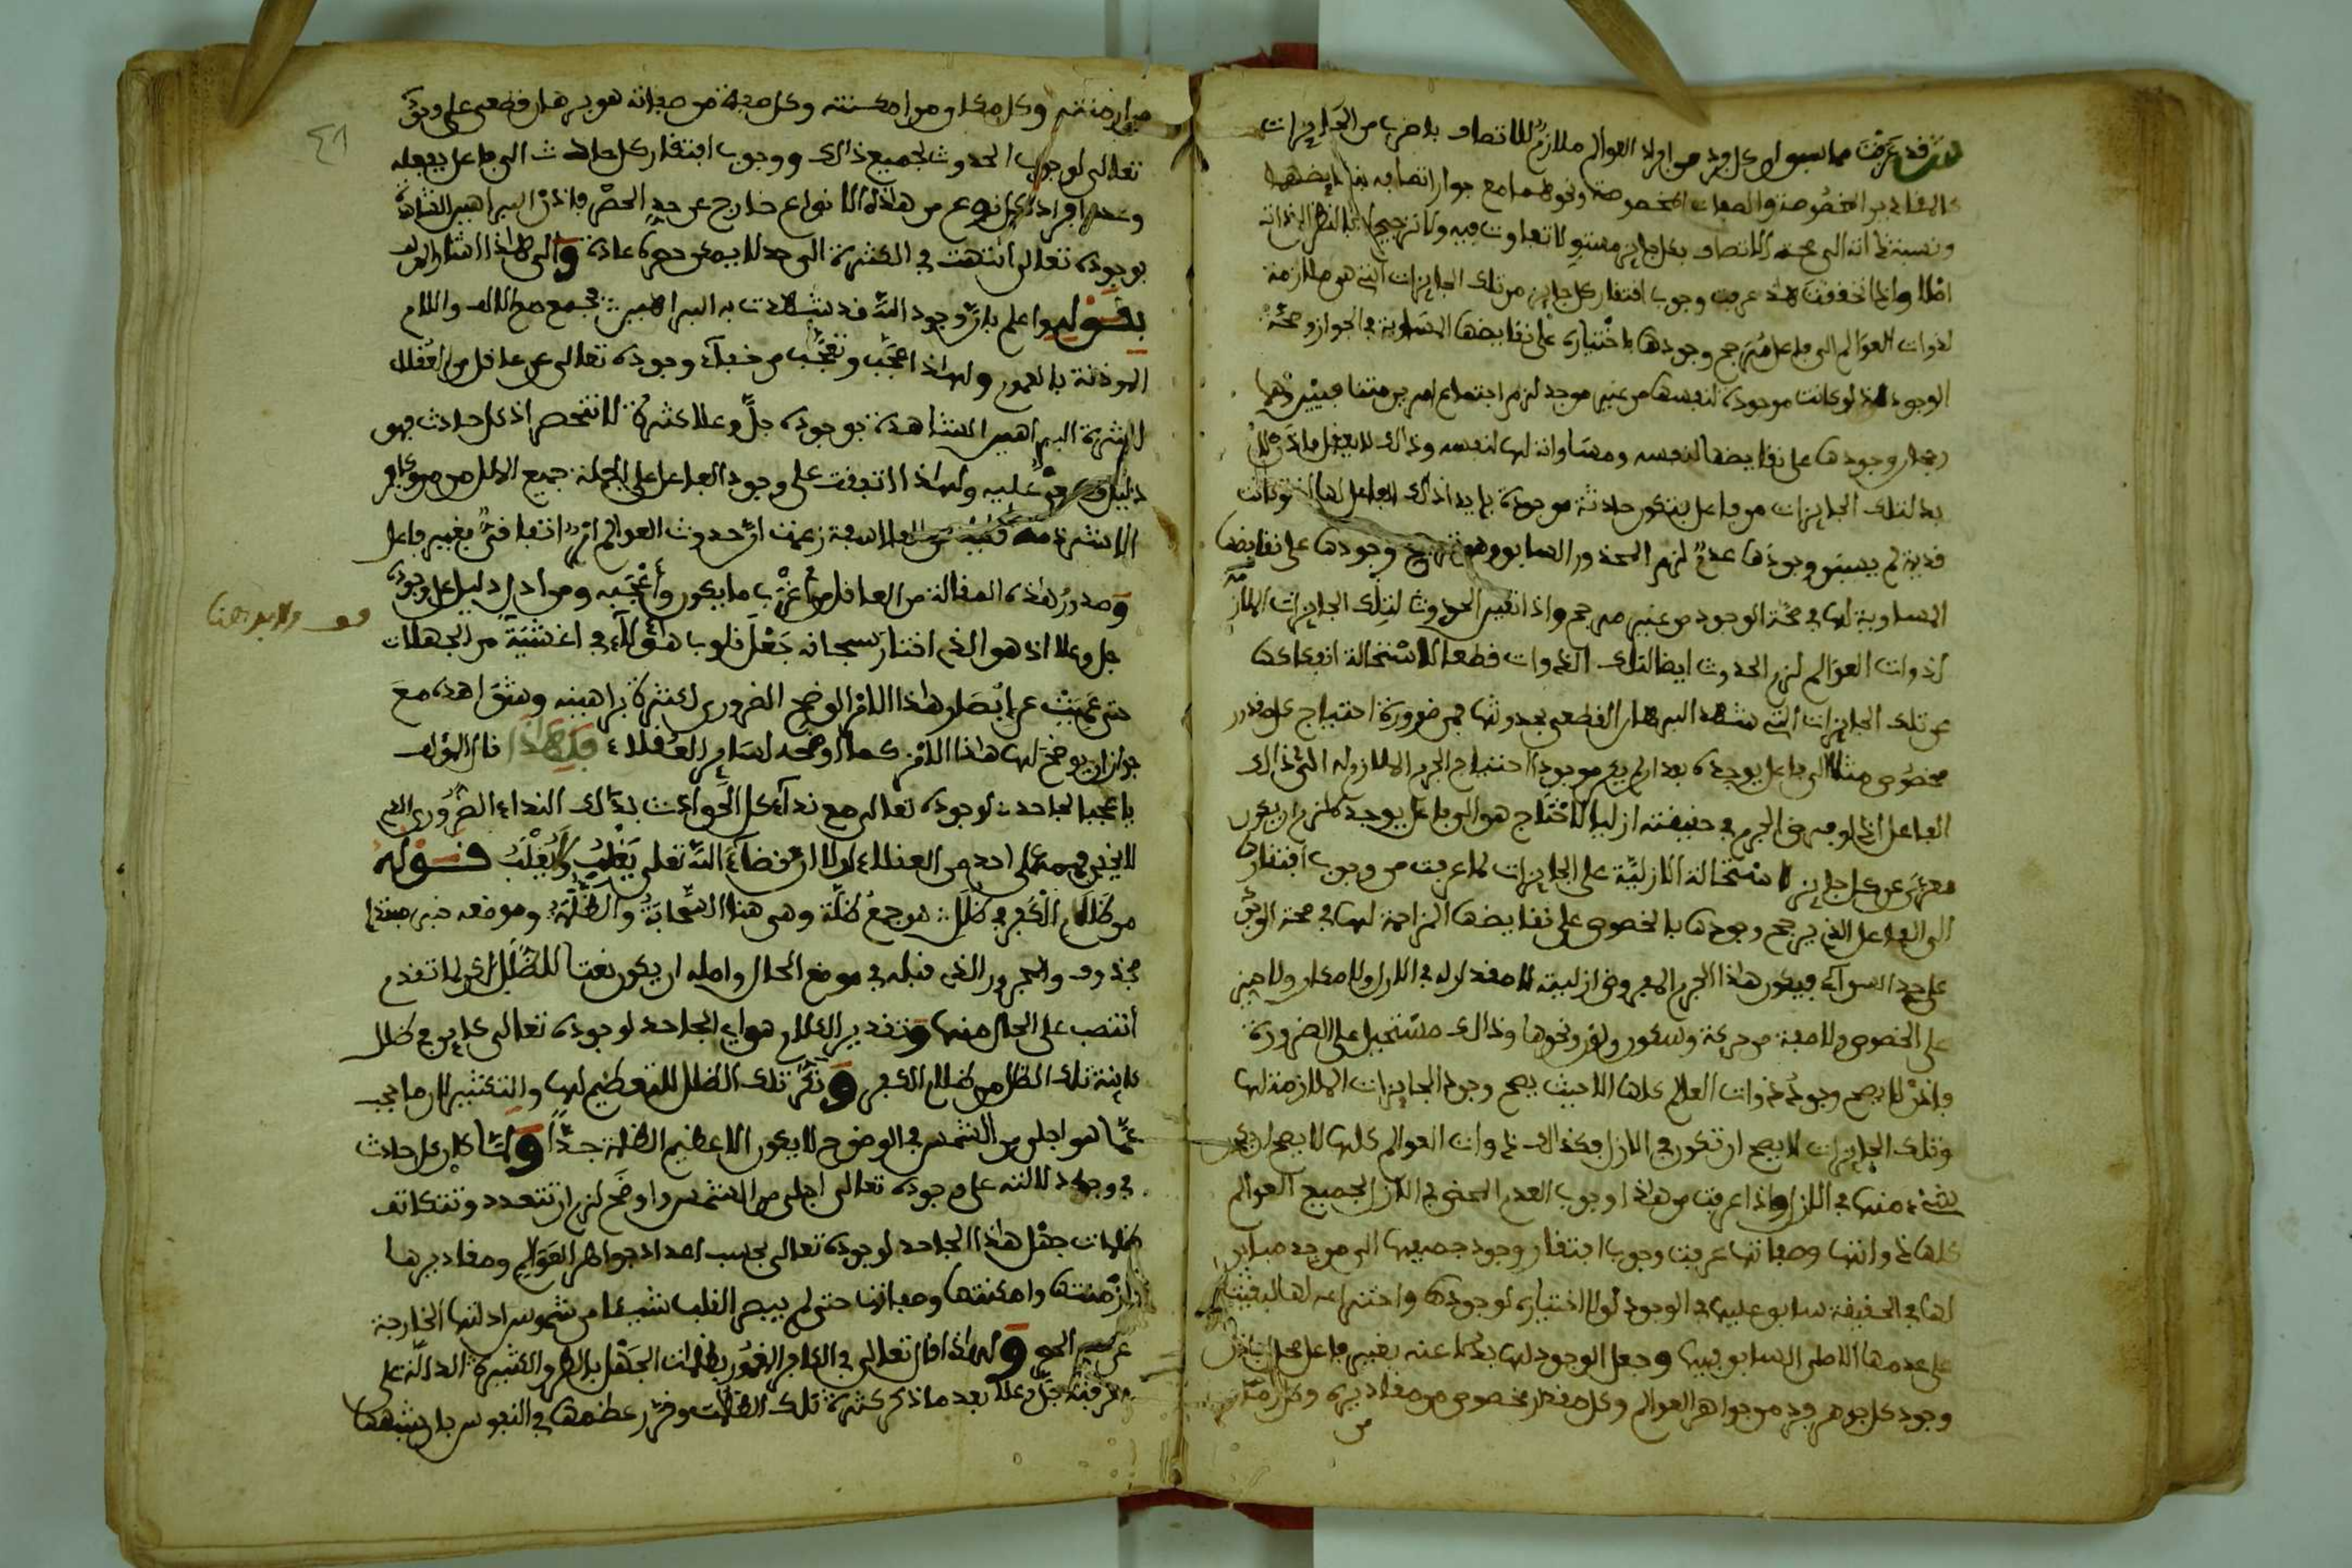 قد عرفت مما سبق ان كل فرد من افراد العوالم ملازم للاتصاف باضرب من الجايزات
كالمقادير المخصوصة والصفات المخصوصة ونحوهما مع جواز اتصافه بنقايضها
ونسبة ذاته الى صحة الاتصاف بكل جايز مستو لا تفاوت فيه ولا ترجيح بالنظر الى ذاته
اصلا واذا تحققت هذا عرفت وجوب افتقار كل جايز من تلك الجايزات التي هي ملازمة
لذوات العوالم الى فاعل مرجح وجودها باختياره على نقايضها المساوية في الجواز وصحة
الوجود اذ لو كانت موجودة لنفسها من غير موجد لزم اجتماع امرين متنافيين وهما
رجحان وجودها على نقايضها لنفسه ومساواته لها لنفسه وذلك لا يعقل فاذن لا
بد لتلك الجايزات من فاعل فتكون حادثة موجودة بايجاد ذلك الفاعل لها اذ لو كانت
قديمة لم يسبق وجودها عدم لزم المحذور السابق وهو ترجيح وجودها على نقايضها
المساوية لها في صحة الوجود من غير مرجح واذا تعين الحدوث لتلك الجايزات الملازمة
لذوات العوالم لزم الحدوث ايضا لتلك الذوات قطعا لاستحالة انفكاكها
عن تلك الجايزات التي شهد البرهان القطعي بحدوثها فمن ضرورة احتياج كل قدر
مخصوص مثلا الى فاعل يوجده بعد ان لم يكن موجودا احتياج الجرم الملازم له الى ذلك
الفاعل اذ لو فرض الجرم في حقيقته ازليا لا يحتاج هو الى فاعل يوجده لزم ان يكون
معرى عن كل جايز لاستحالة الازلية على الجايزات لما عرفت من وجوب افتقارها
الى الفاعل الذي يرجح وجودها بالخصوص على نقايضها المزاحمة لها في صحة الوجود
على حد السواء فيكون هذا الجرم المفروض ازليته لا مقدار له في الازل ولا مكان ولا حيز
على الخصوص ولا صفة من حركة وسكون ولون ونحوها وذلك مستحيل على الضرورة
فاذن لا يصح وجود ذوات العالم كلها الا حيث يصح وجود الجايزات الملازمة لها
وتلك الجايزات لا يصح ان تكون في الازل فكذلك ذوات العوالم كلها لا يصح ان يكون
شيء منها في الازل واذا عرفت من هذا وجوب العدم المحض في الازل لجميع العوالم
كلها ذواتها وصفاتها عرفت وجوب افتقار وجود جميعها الى موجد مباين
لها في الحقيقة سابق عليها في الوجود لولا اختياره لوجودها واختراعه لها لبقيت
على عدمها الاصلي السابق فيها وجعل الوجود لها بدلا عنه بغير فاعل محال فاذن
وجود كل جوهر فرد من جواهر العوالم وكل مقدار مخصوص من مقاديره وكل زمن
من
٤١
من ازمنته وكل مكان من امكنته وكل صفة من صفاته هو برهان قطعي على وجوده
تعالى لوجوب الحدوث لجميع ذلك ووجوب افتقار كل حادث الى فاعل يفعله
وعدد افراد كل نوع من هذه الانواع خارج عن حد الحصر فاذن البراهين القاطعة
بوجوده تعالى انتهت في الكثرة الى حد لا يمكن حصره عادة والى هذا اشار المؤلف
بقوله واعلم بان وجود الله قد شهدت به البراهين فجمع مع الالف واللام
الموذنة بالعموم ولهذا عجب وتعجب من خفاء وجوده تعالى عن عاقل من العقلاء
لكثرة البراهين الشاهدة بوجوده جل وعلا كثرة لا تنحصر اذ كل حادث فهو
دليل عليه ولهذا اتفقت على وجود الفاعل على الجملة جميع الملل من مومن وكافر
الا شرذمة قليلة من الفلاسفة زعمت ان حدوث العوالم امر اتفاقي بغير فاعل
وصدور هذه المقالة من العاقل من اغرب ما يكون واعجبه ومن ادل دليل على وجوده
جل وعلا اذ هو الذي اختار سبحانه جعل قلوب هؤلاء في اغشية من الجهالات
حتى عميت عن ابصار هذا الامر الواضح الضروري لكثرة براهينه وشواهده مع
جواز ان يوضح لها هذا الامر كما اوضحه لساير العقلاء فلهذا قال المؤلف
يا عجبا لجاحد لوجوده تعالى مع نداء كل الحوادث بذلك النداء الضروري الذي
لا يخفى فهمه على احد من العقلاء لولا ان قضاء الله تعالى يغلب ولا يغلب قوله
من ظلام الكفر في ظلل هو جمع ظلة وهي هنا السحابة والظلة وموضعه خبر مبتدا
محذوف والمجرور الذي قبله في موضع الحال واصله ان يكون نعتا للظلل لكن لما تقدم
انتصب على الحال منها وتقدير الكلام هو اي الجاحد لوجوده تعالى كاين في ظلل
كاينة تلك الظلل من ظلام الكفر ونكر تلك الظلل للتعظيم لها والتكثير لان ما يحجب
عما هو اجلى من الشمس في الوضوح لا يكون الا عظيم الظلمة جدا ولما كان كل حادث
في وجوده دلالته على وجوده تعالى اجلى من الشمس واوضح لزم ان تتعدد وتتكاثف
ظلمات جهل هذا الجاحد لوجوده تعالى بحسب اعداد جواهر العوالم ومقاديرها
وازمنتها وامكنتها وصفاتها حتى لم يبصر القلب شيئا من شموس ادلتها الخارجة
عن الحصر ولهذا قال تعالى في الكافر المغمور بظلمات الجهل بالطرق الكثيرة الدالة على
معرفته جل وعلا بعد ما ذكر كثرة تلك الظلمات وقرر عظمها في النفوس بان شبهها
قف ولا بد هنا